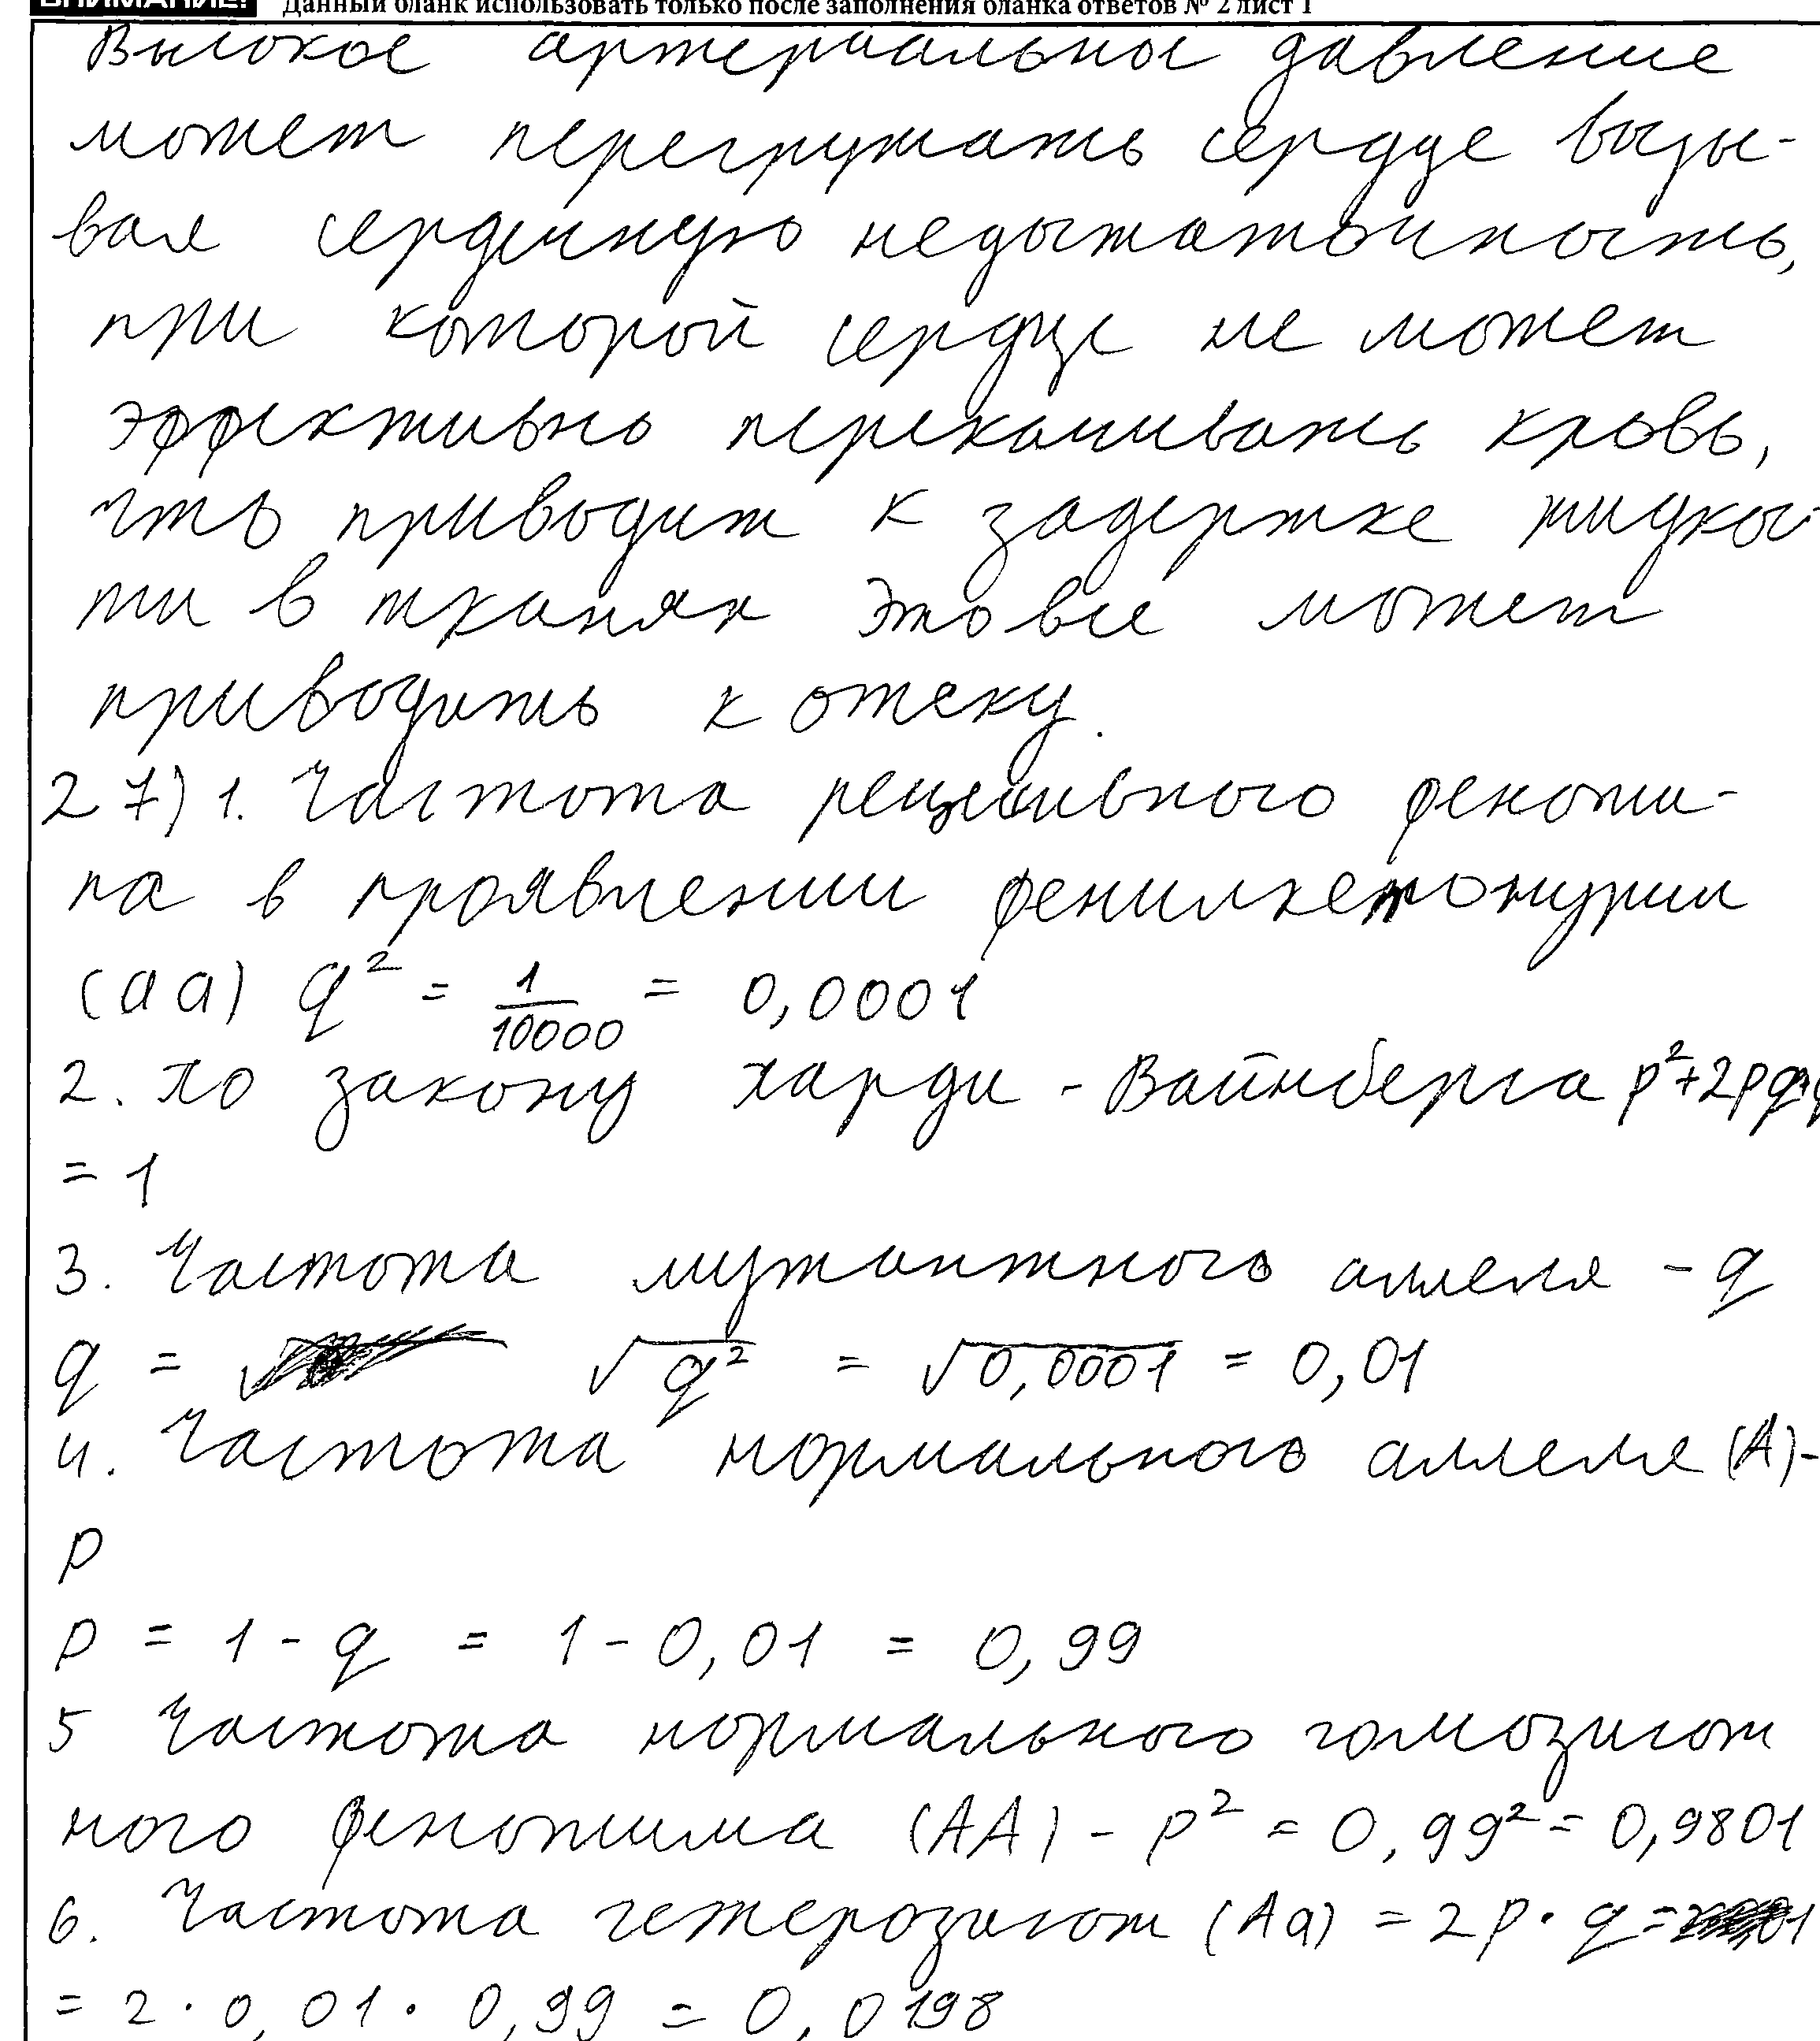 ВНИМАНИЕ! Данный бланк использовать только после заполнения бланка ответов № 2 лист 1
Высокое артериальное давление
может перегружать сердце вызы-
вая сердечную недостаточность,
при которой сердце не может
эффективно перекачивать кровь,
что приводит к задержке жидкос-
ти в тканях это все может
приводить к отеку.
27) 1. Частота рецессивного феноти-
па в проявлении фенилкетонурии
(aa) q² = 1/10000 = 0,0001
2. По закону Харди - Вайнберга p²+2pq+q
= 1
3. Частота мутантного аллеля - q
q = √q² = √0,0001 = 0,01
4. Частота нормального аллеля (A)-
p
p = 1 - q = 1 - 0,01 = 0,99
5 Частота нормального гомозигот
ного фенотипа (AA) - p² = 0,99² = 0,9801
6. Частота гетерозигот (Aa) = 2p · q =
= 2 · 0,01 · 0,99 = 0,0198